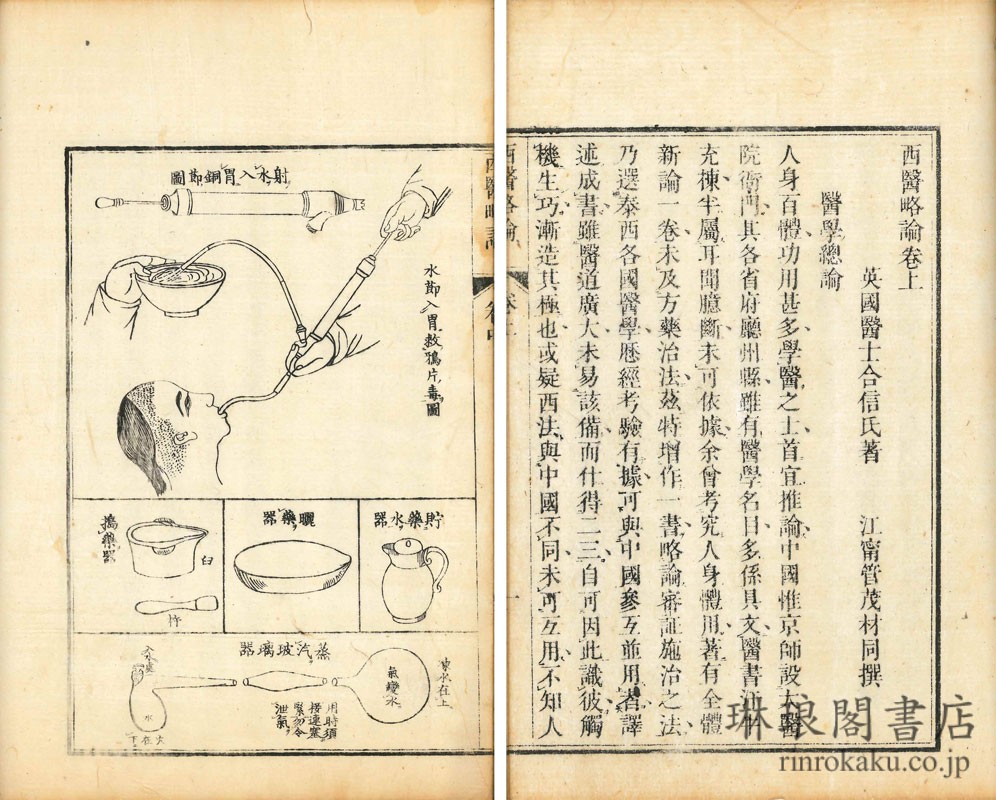 西醫略論卷上
英國醫士合信氏著　江甯管茂材同撰
醫學總論
人身百體功用甚多學醫之士首宜推論中國惟京師設太醫
院衙門其各省府廳州縣雖有醫學名目多係具文醫書汗牛
充棟半屬耳聞臆斷未可依據余曾考究人身體用著有全體
新論一卷未及方藥治法茲特增作一書略論審証施治之法
乃選泰西各國醫學歷經考驗有據可與中國參互並用者譯
述成書雖醫道廣大未易該備而什得二三自可因此識彼觸
機生巧漸造其極也或疑西法與中國不同未可互用不知人
西醫略論
卷上
西醫略論
射水入胃銅節圖
水節入胃救鴉片毒圖
貯藥水器
曬藥器
搗藥器
臼
杵
蒸汽玻璃器
凍水在上
氣變水
用時須
接連塞
緊勿令
泄氣
入水處
水
火在下
琳琅閣書店
rinrokaku.co.jp